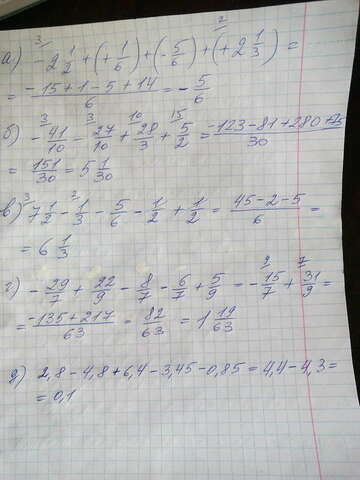 а) -2 1/2 + (+1/6) + (-5/6) + (+2 1/3) =
= (-15+1-5+14)/6 = -5/6
б) -41/10 - 27/10 + 28/3 + 5/2 = (-123-81+280+75)/30
= 151/30 = 5 1/30
в) 7 1/2 - 1/3 - 5/6 - 1/2 + 1/2 = (45-2-5)/6 =
= 6 1/3
г) -29/7 + 22/9 - 8/7 - 6/7 + 5/9 = -15/7 + 31/9 =
= (-135+217)/63 = 82/63 = 1 19/63
д) 2,8-4,8+6,4-3,45-0,85=4,4-4,3=
=0,1